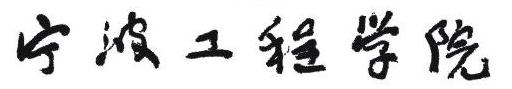 宁波工程学院